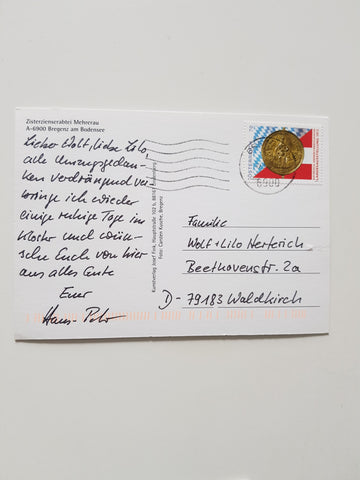 Zisterzienserabtei Mehrerau
A-6900 Bregenz am Bodensee
Lieber Wolf, liebe Lilo,
alle Umzugsgedan-
ken verdrängend ver-
bringe ich wieder
einige ruhige Tage im
Kloster und wün-
sche Euch von hier
aus alles Gute
Euer
Hans-Peter
Kunstverlag Josef Fink, Hauptstraße 102 b, 88161 Lindenberg
Foto: Carsten Kusche, Bregenz
6900
Familie
Wolf + Lilo Herterich
Beethovenstr. 2a
D-79183 Waldkirch